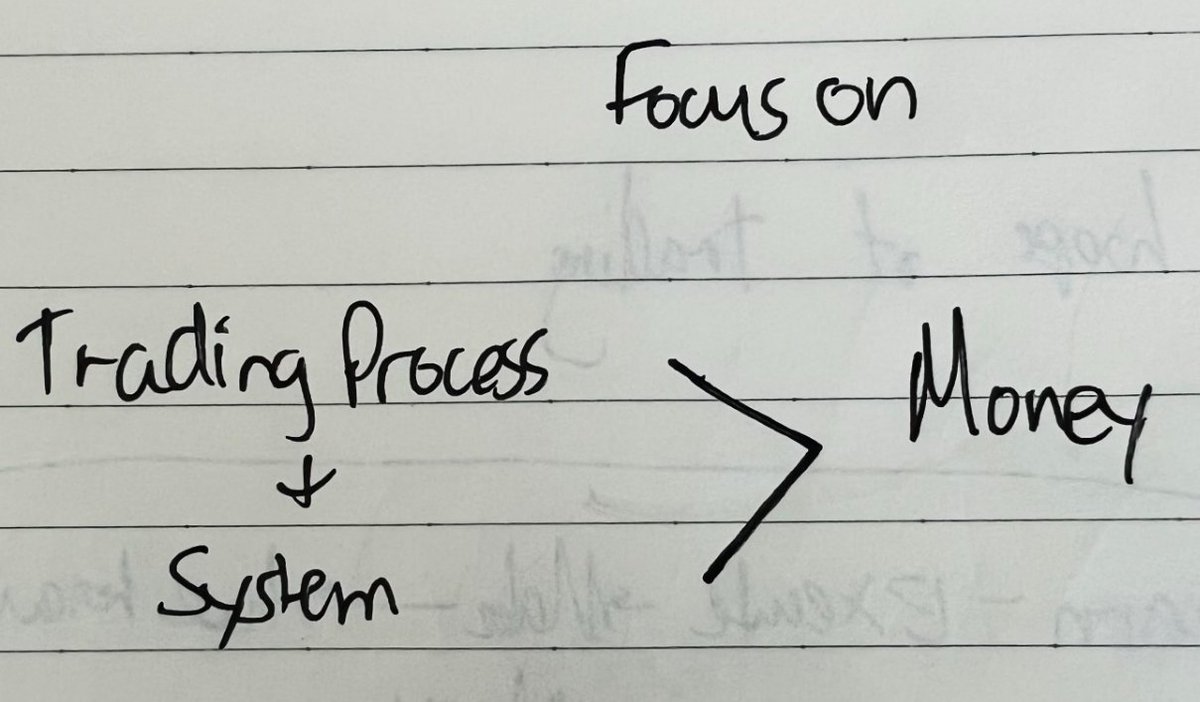 Focus on
Trading Process > Money
↓
System